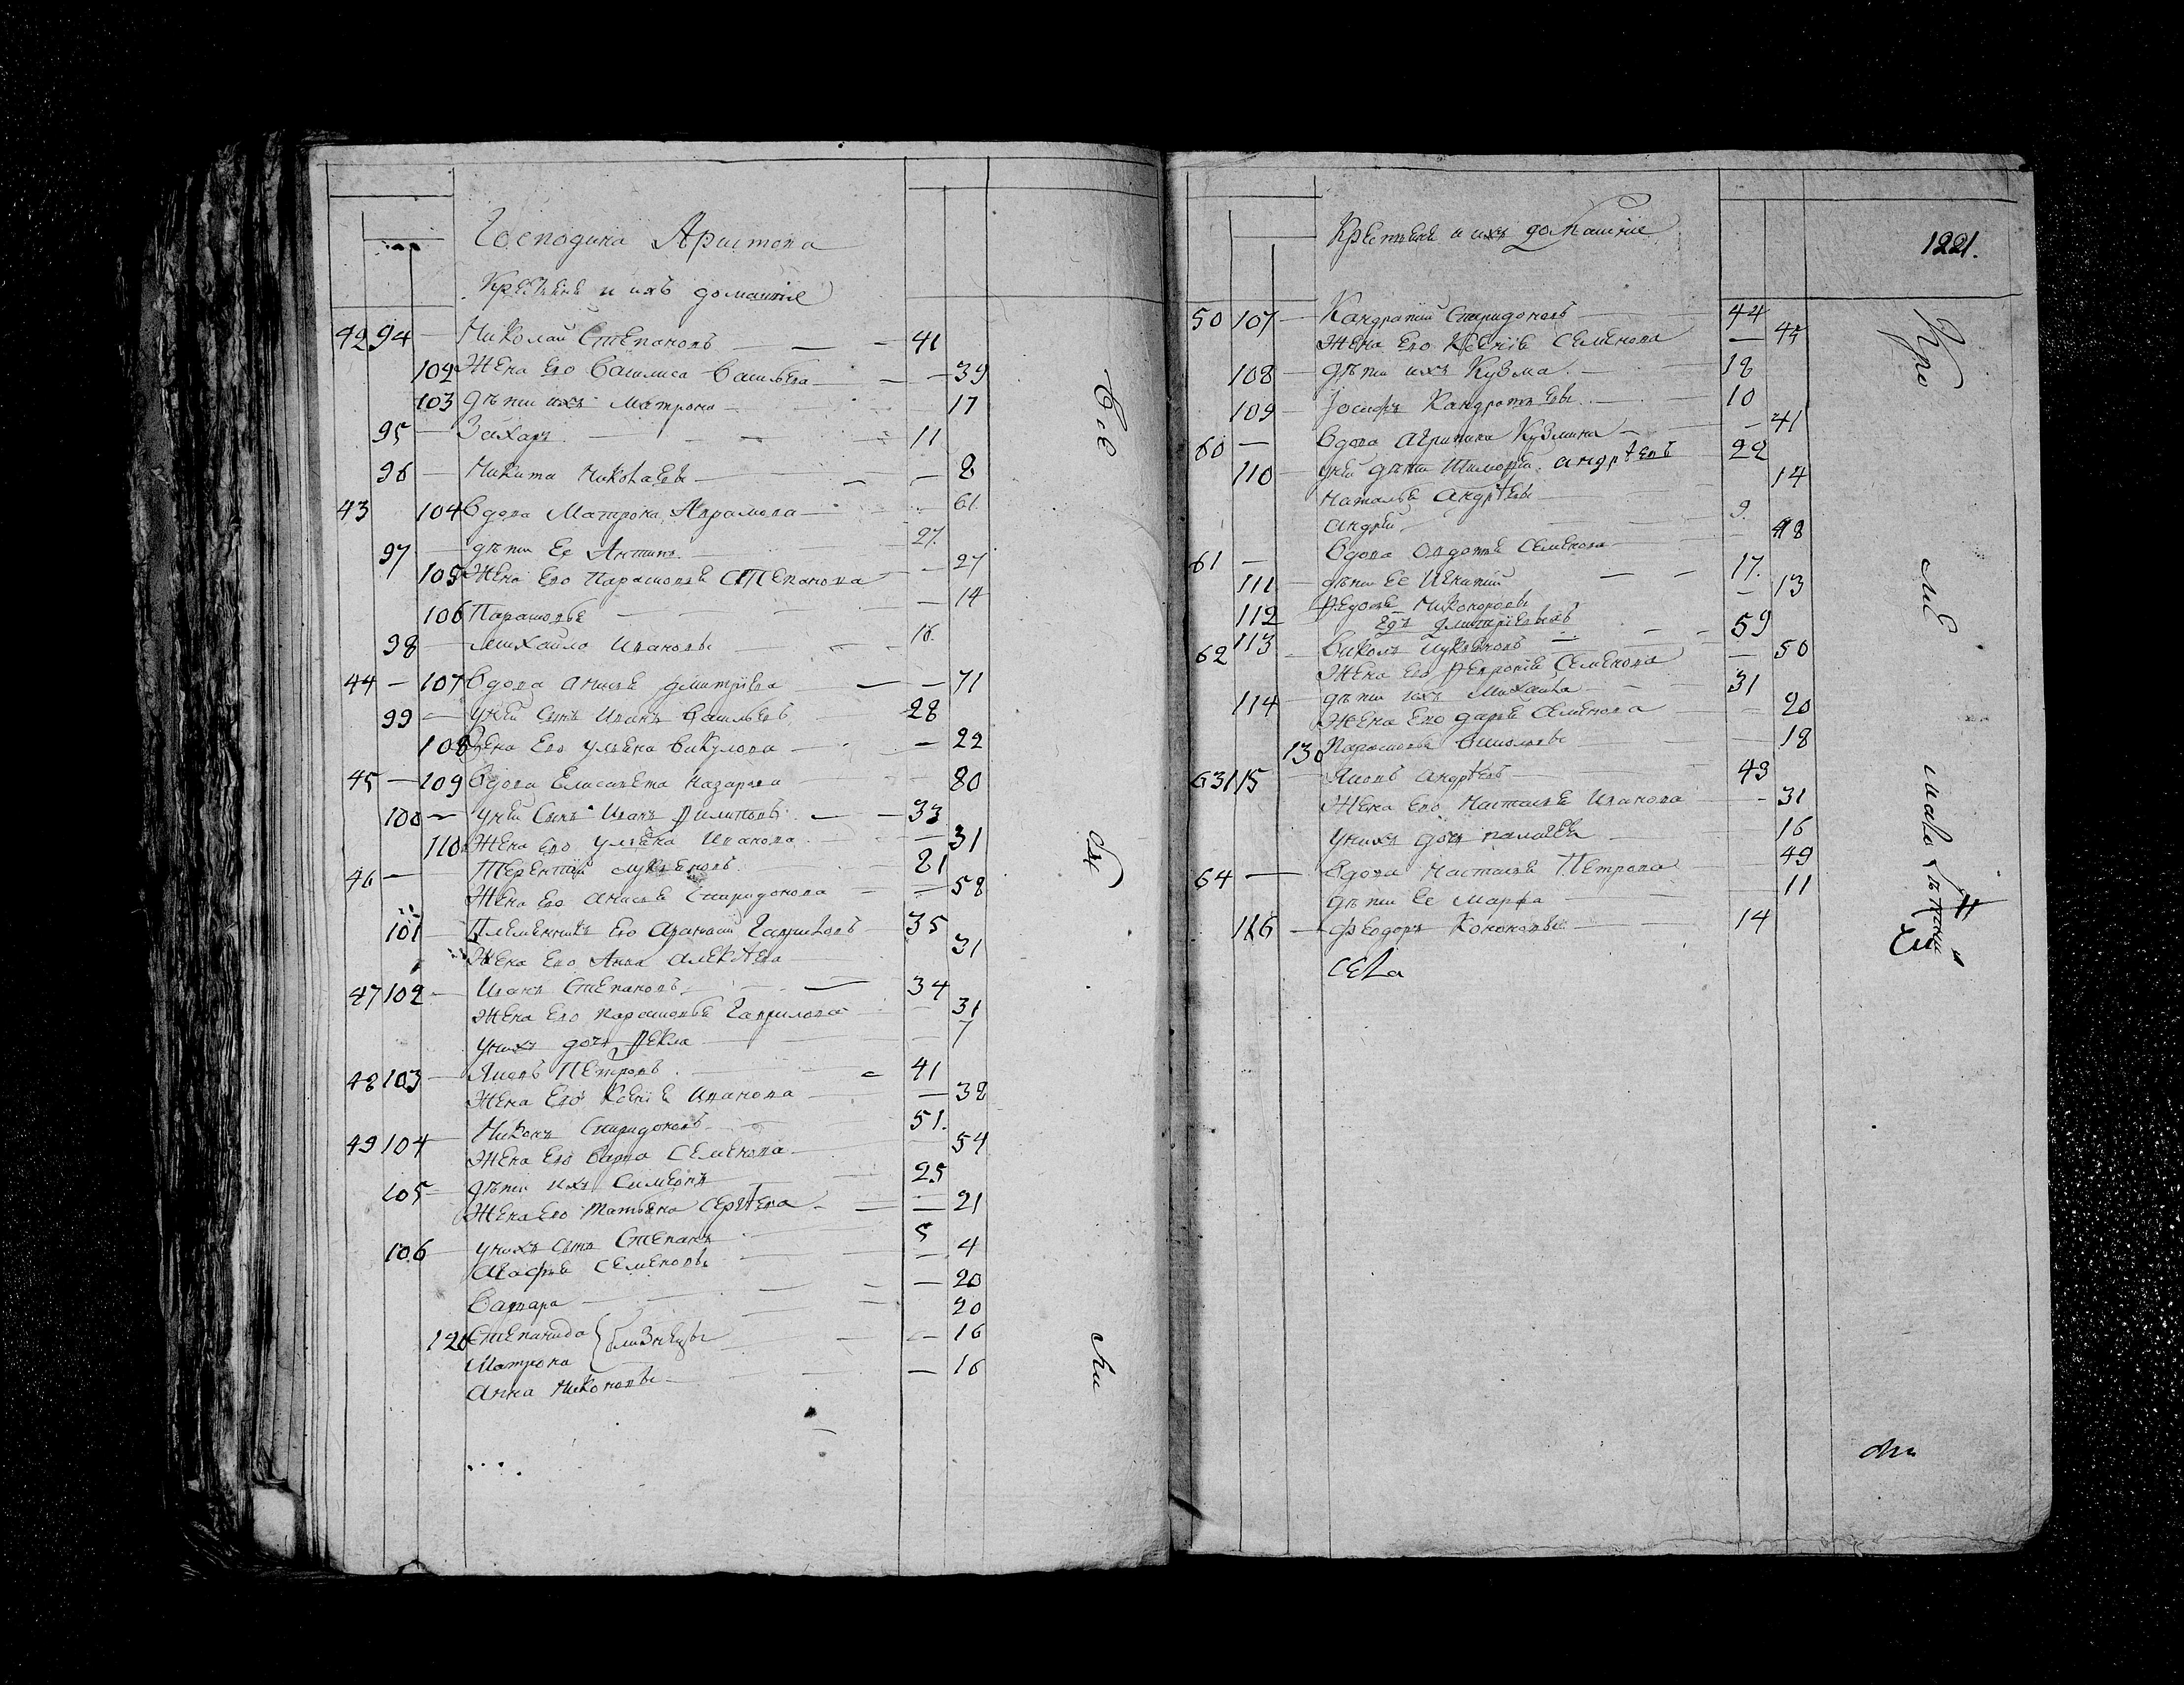 Господина Аристова
Крестьяне и ихъ домашніе
42 94 — Николай Степановъ — 41
102 Жена его Василиса Васильева — 39
103 Дѣти ихъ Матрона — 17
95 — Захаръ — 11
96 — Никита Николаевы — 8
43 104 Вдова Матрона Аврамова — 61
97 — дѣти ее Антипъ — 27
105 Жена его Парасковья Степанова — 27
106 Парасковья — 14
98 — Михайло Ивановы
44 — 107 Вдова Анисья Дмитріева — 71
99 — Унеи Сынъ Иванъ Васильевъ 28
108 Жена его Ульяна Викулова — 22
45 — 109 Вдова Елисавета Назарова 80
100 — Унеи Сынъ Иванъ Филиповъ — 33
110 Жена его Ульяна Иванова — 31
46 — Терентій Лукьяновъ 21
Жена его Анисья Спиридонова — 58
101 Племенникъ его Афанасій Гавриловъ 35
Жена его Анна Алексѣева 31
47 102 — Иванъ Степановъ — 34
Жена его Парасковья Гаврилова — 31
унихъ дочь Фекла — 7
48 103 — Яковъ Петровъ — 41
Жена его Ксенія Иванова — 38
49 104 — Никонъ Спиридоновъ 51.
Жена его Варва Семенова 54
105 — дѣти ихъ Симеонъ 25
Жена его Татьяна Сергѣева — 21
106 — унихъ сынъ Степанъ 5
Агафья Семеновы — 4
Варвара — 20
20
120 Степанида } близнецы — 16
Матрона
Анна Никоновы — 16
Все
Ми
Крестьяне и ихъ домашніе
1221.
50 107 — Кандратій Спиридоновъ 44
Жена его Ксенія Семенова —
108 — дѣти ихъ Кузма — 18
109 — Іосифъ Кандратьевы — 10
60 — Вдова Агрипина Кузмина — 41
110 — унеи дѣти Тимофей Андрѣевъ 22
Наталья Андрѣевы 14
Андрей — 9.
61 — Вдова Авдотья Семенова 48
111 — дѣти ее Игнатій — 17.
112 Федосья Никоноровы — 13
Дмитріевыхъ
62 113 — Викулъ Лукьяновъ — 59
Жена его Февронія Семенова — 50
114 — дѣти ихъ Михаила — 31
Жена его Дарья Семенова — 20
130 Парасковья Викуловы — 18
63 115 — Яковъ Андрѣевъ — 43
Жена его Настасья Иванова — 31
унихъ дочь Палагея 16
64 — Вдова Настасья Петрова 49
дѣти ее Марфа — 11
116 — Феодоръ Кононовы — 14
села
Кро
мѣ
малолѣтнихъ